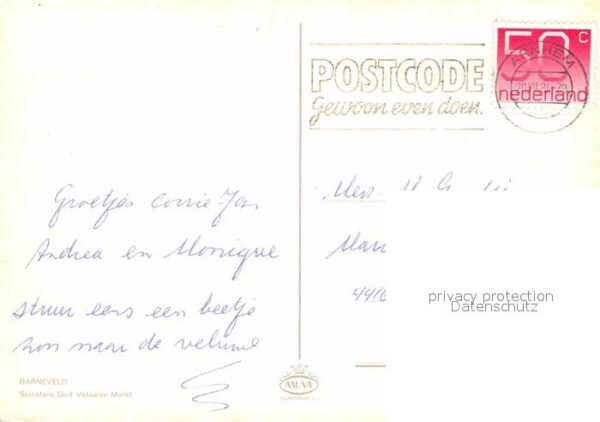 50 c
nederland
ARNHEM
POSTCODE
Gewoon even doen.
Groetjes Corrie Jan
Andrea en Monique
stuur eens een beetje
zon naar de veluwe
Mev.
4416
privacy protection
Datenschutz
BARNEVELD
Spinsters Oud Veluwse Markt
MUVA